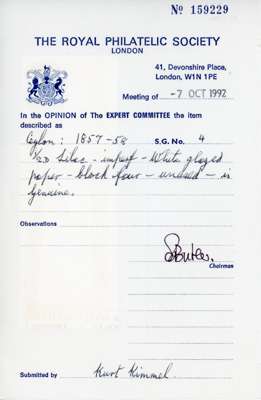 No 159229
THE ROYAL PHILATELIC SOCIETY
LONDON
41, Devonshire Place,
London, W1N 1PE
Meeting of -7 OCT 1992
In the OPINION of The EXPERT COMMITTEE the item
described as
Ceylon: 1857-58 S.G. No. 4
1/2D lilac - imperf - white glazed
paper - block four - unused - is
genuine.
Observations
Chairman
Submitted by Kurt Kimmel.